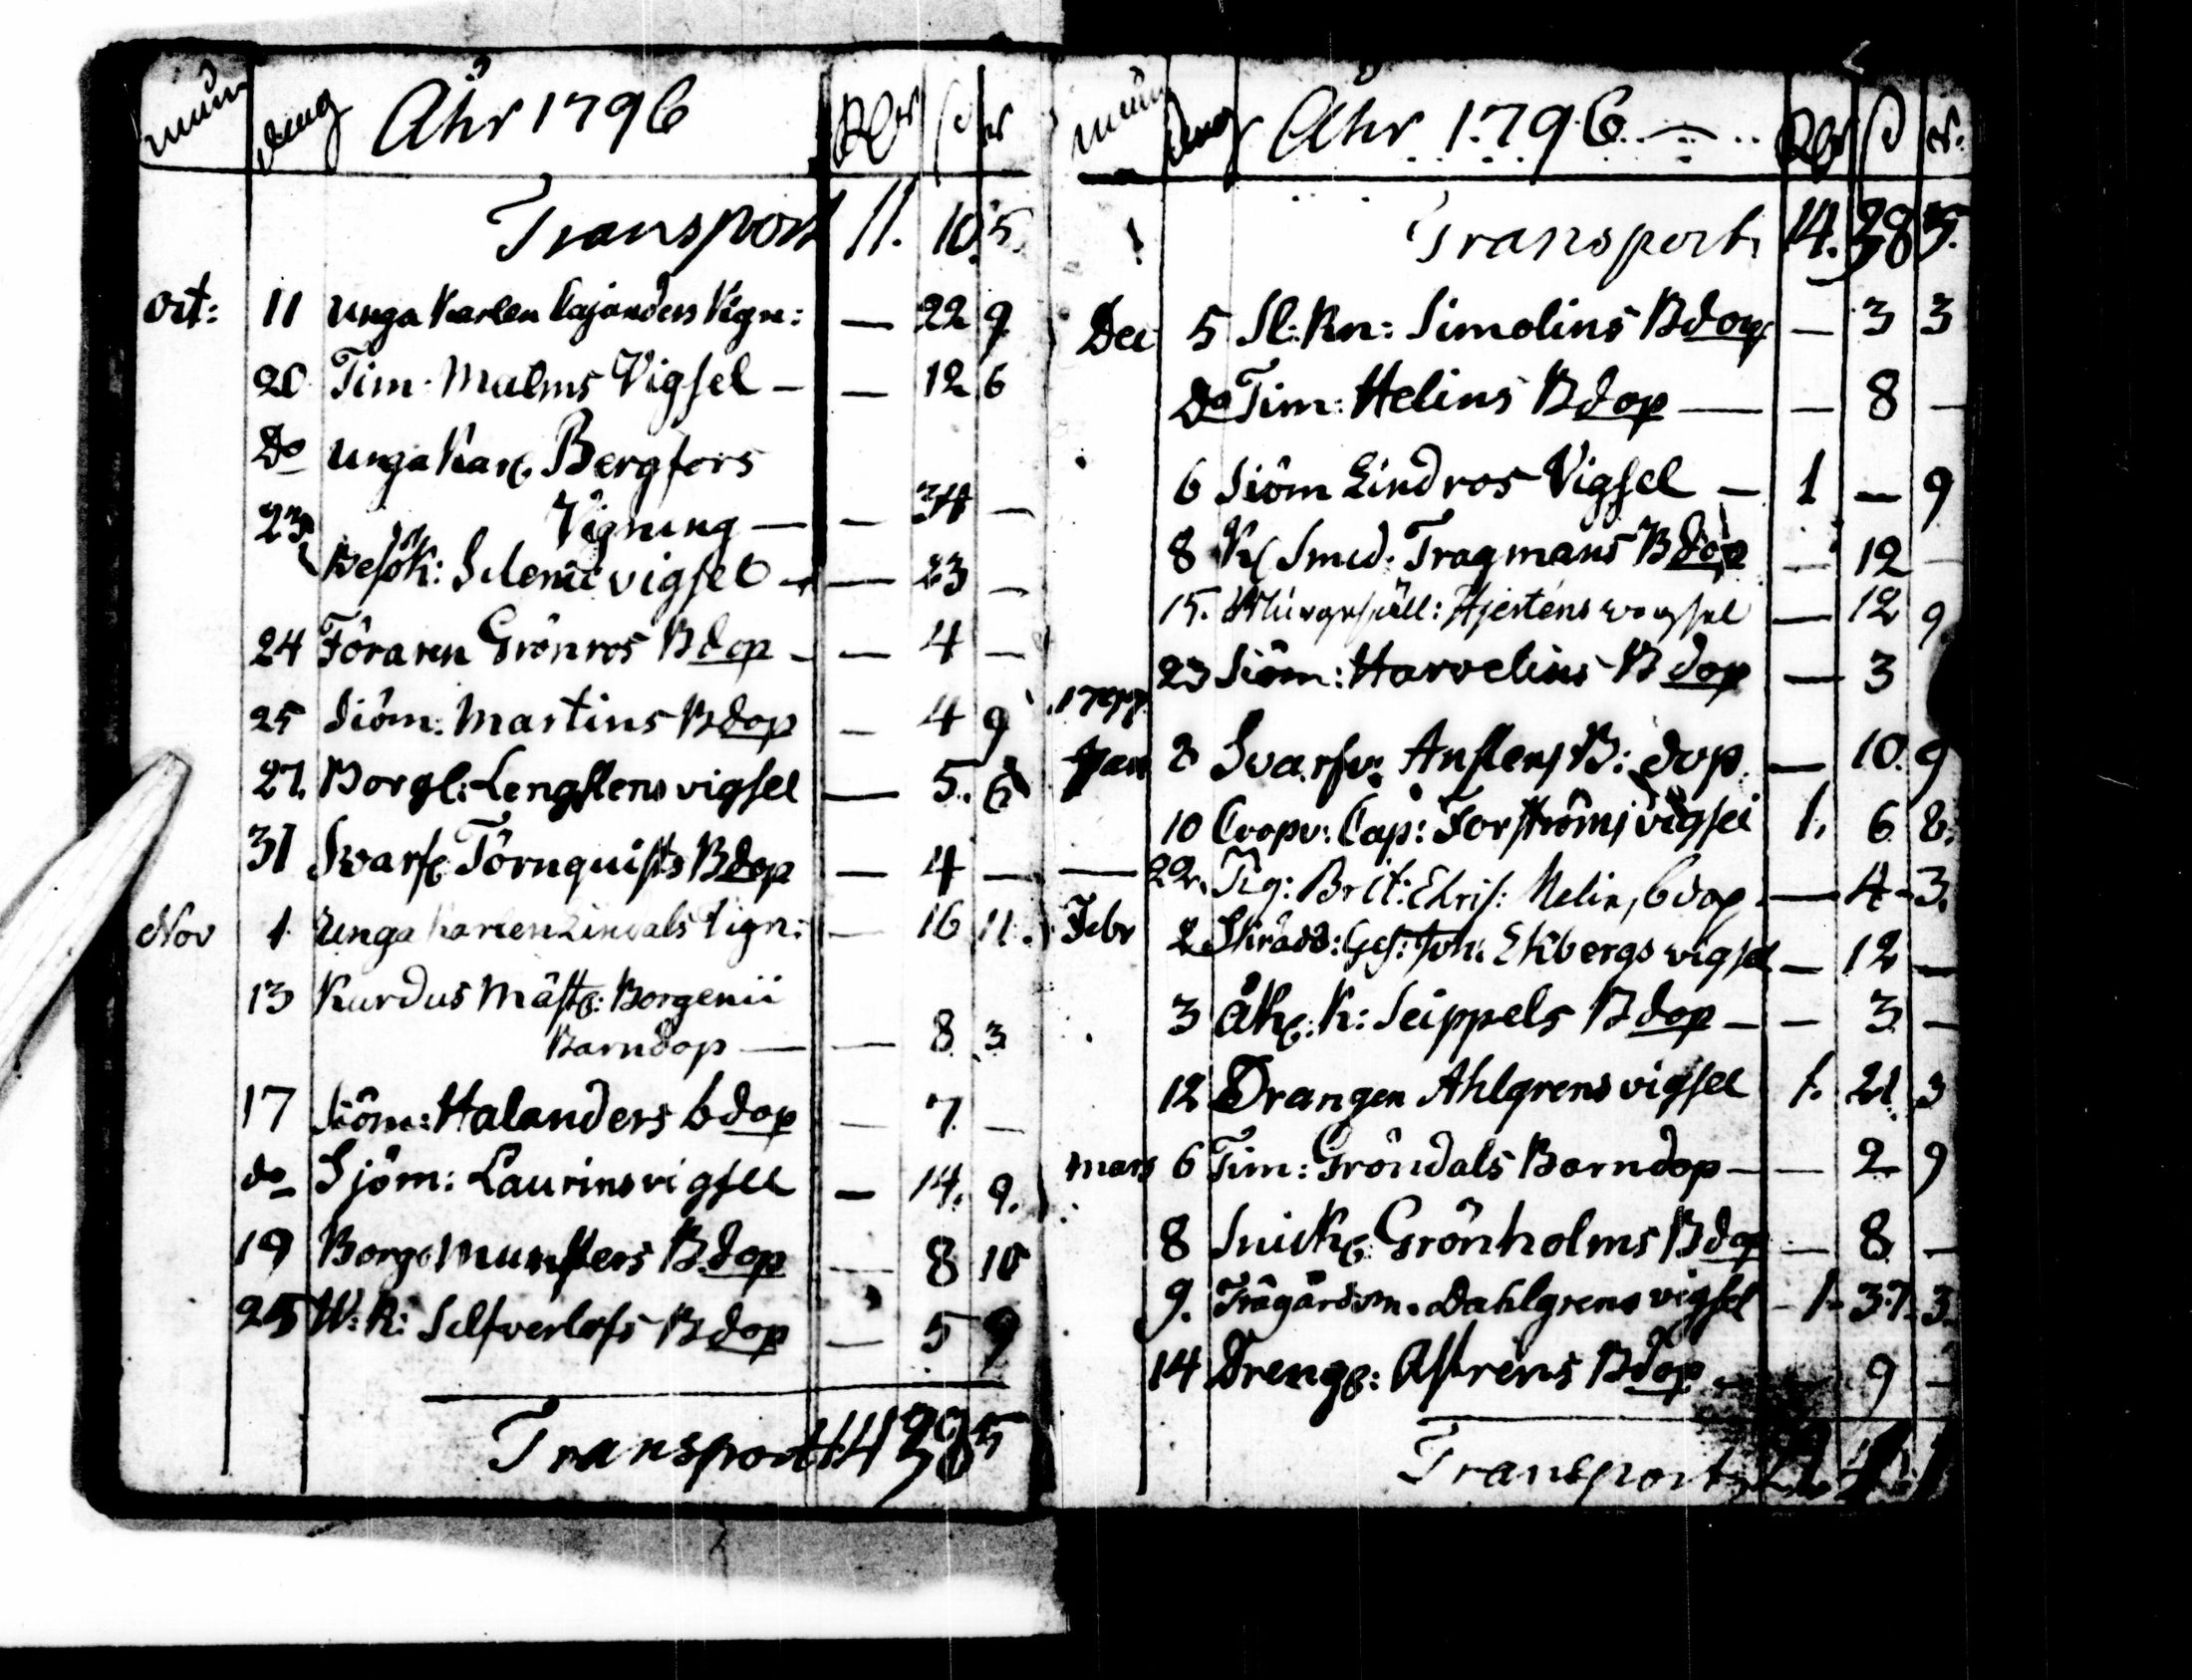 Åhr 1796
Transport 11. 10. 5.
Oct: 11 Unga Karlen Cajanders Vign: — 22 9
20 Tim. Malms Vigsel — — 12 6
Do Unga Kar. Bergfors
Vigning — — 34 —
23 Besök: vigsel — — 23 —
24 Föraren Grönros Bdop — — 4 —
25 Siöm: Martins Bdop — 4 9
27. Borgl: Lengstens vigsel — 5. 6
31 Svarf. Törnquists Bdop — 4 —
Nov 1 Unga Karlen Lindals Vign: — 16 11.
13 Kardus Mäst: Borgenii
Barndop — — 8 3
17 Siöm: Halanders bdop — 7 —
do Sjöm: Laurins vigsel — 14. 9.
19 Borg. Munsters Bdop — 8 10
25 W: K: Selfverlofs Bdop — 5 9
Transport 14 38 5
Åhr 1796
Transport 14. 38 5.
Dec 5 Sl: Kn: Simolins Bdop — 3 3
Do Tim: Helins Bdop — — 8 —
6 Siöm Lindros Vigsel — 1 — 9
8 Kl Smed. Tragmans Bdop — 12 —
15. Hjerténs vigsel — 12 9
23 Siöm: Harvelins Bdop — 3
1797
Jan 8 Svarfv: B: dop. — 10. 9
10 Coopv: Cap: Forströms vigsel 1. 6 8.
22. Pig: Brit: Chris: Melins bdop — 4 - 3.
Febr 2 Skrädd: Ges: Joh: Ekbergs vigsel — 12 —
3 Åk: K: Seippels Bdop — — 3 —
12 Drangen Ahlgrens vigsel 1. 21. 3
Mars 6 Tim: Gröndals Barndop — — 2 9
8 Snick: Grönholms Bdop — 8 —
9. Trägårdsm. Dahlgrens vigsel - 1. 37. 3.
14 Dreng: Bdop — 9 —
Transport